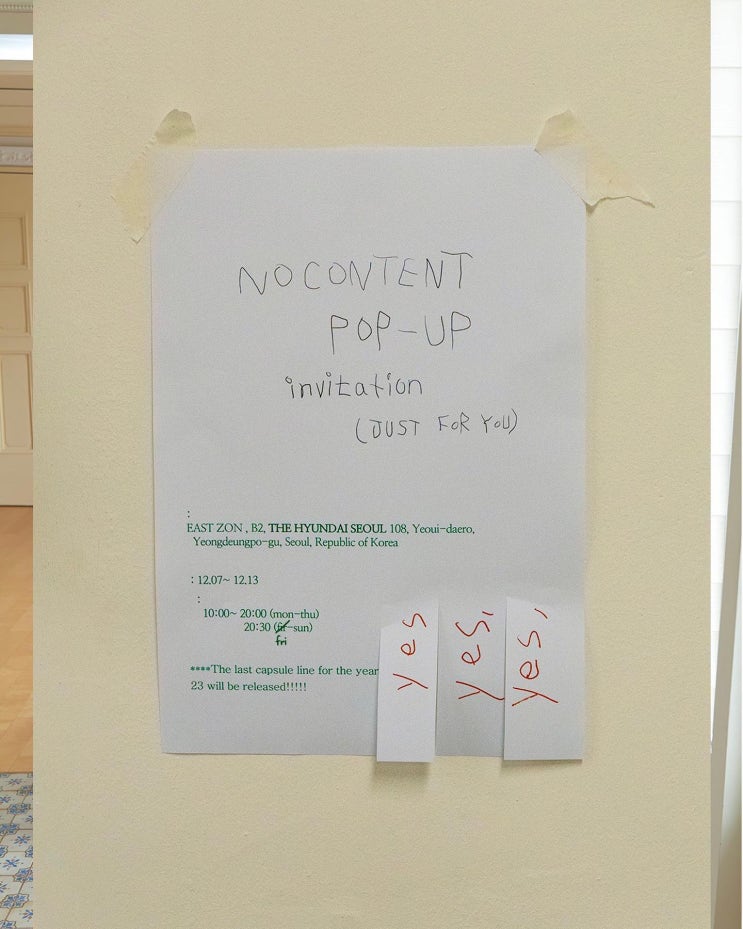 NOCONTENT
POP-UP
invitation
(JUST FOR YOU)
:
EAST ZON , B2, THE HYUNDAI SEOUL 108, Yeoui-daero,
Yeongdeungpo-gu, Seoul, Republic of Korea
: 12.07~ 12.13
:
10:00~ 20:00 (mon-thu)
20:30 (-sun)
fri
****The last capsule line for the year
23 will be released!!!!!
yes
yes,
yes,